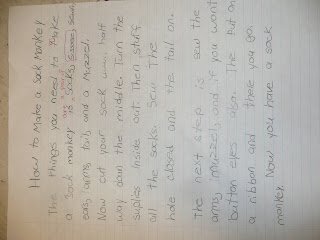 How to Make a Sock Monkey
The things you need to Make
a sock monkey are your
is socks, Scissors, Sewn
ears, arms, tail, and a Muzzel.
Now cut your sock half
way down the middle. Turn the
suplies inside out Then stuff
all the socks. Sew The
hole closed and the tail on.
The next step is sew the
arms, muzzel, and if you want
button eyes also. The Put on
a ribbon and there you go.
Now you have a sock
monkey.